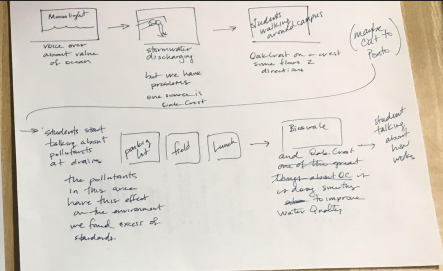 Moonlight
voice over
about value
of ocean
stormwater
discharging
but we have
problems
one source is
Oak Crest
students
walking
around campus
Oak Crest on a crest
some flows 2
directions
(maybe
cut to
Ponto)
Students start
talking about
pollutants
at drains
parking
lot
field
lunch
the pollutants
in this area
have this effect
on the environment
we found excess of
standards.
Bioswale
and Oak Crest
one of the great
things about OC is
is doing
to improve
Water Quality
student
talking
about
how
works